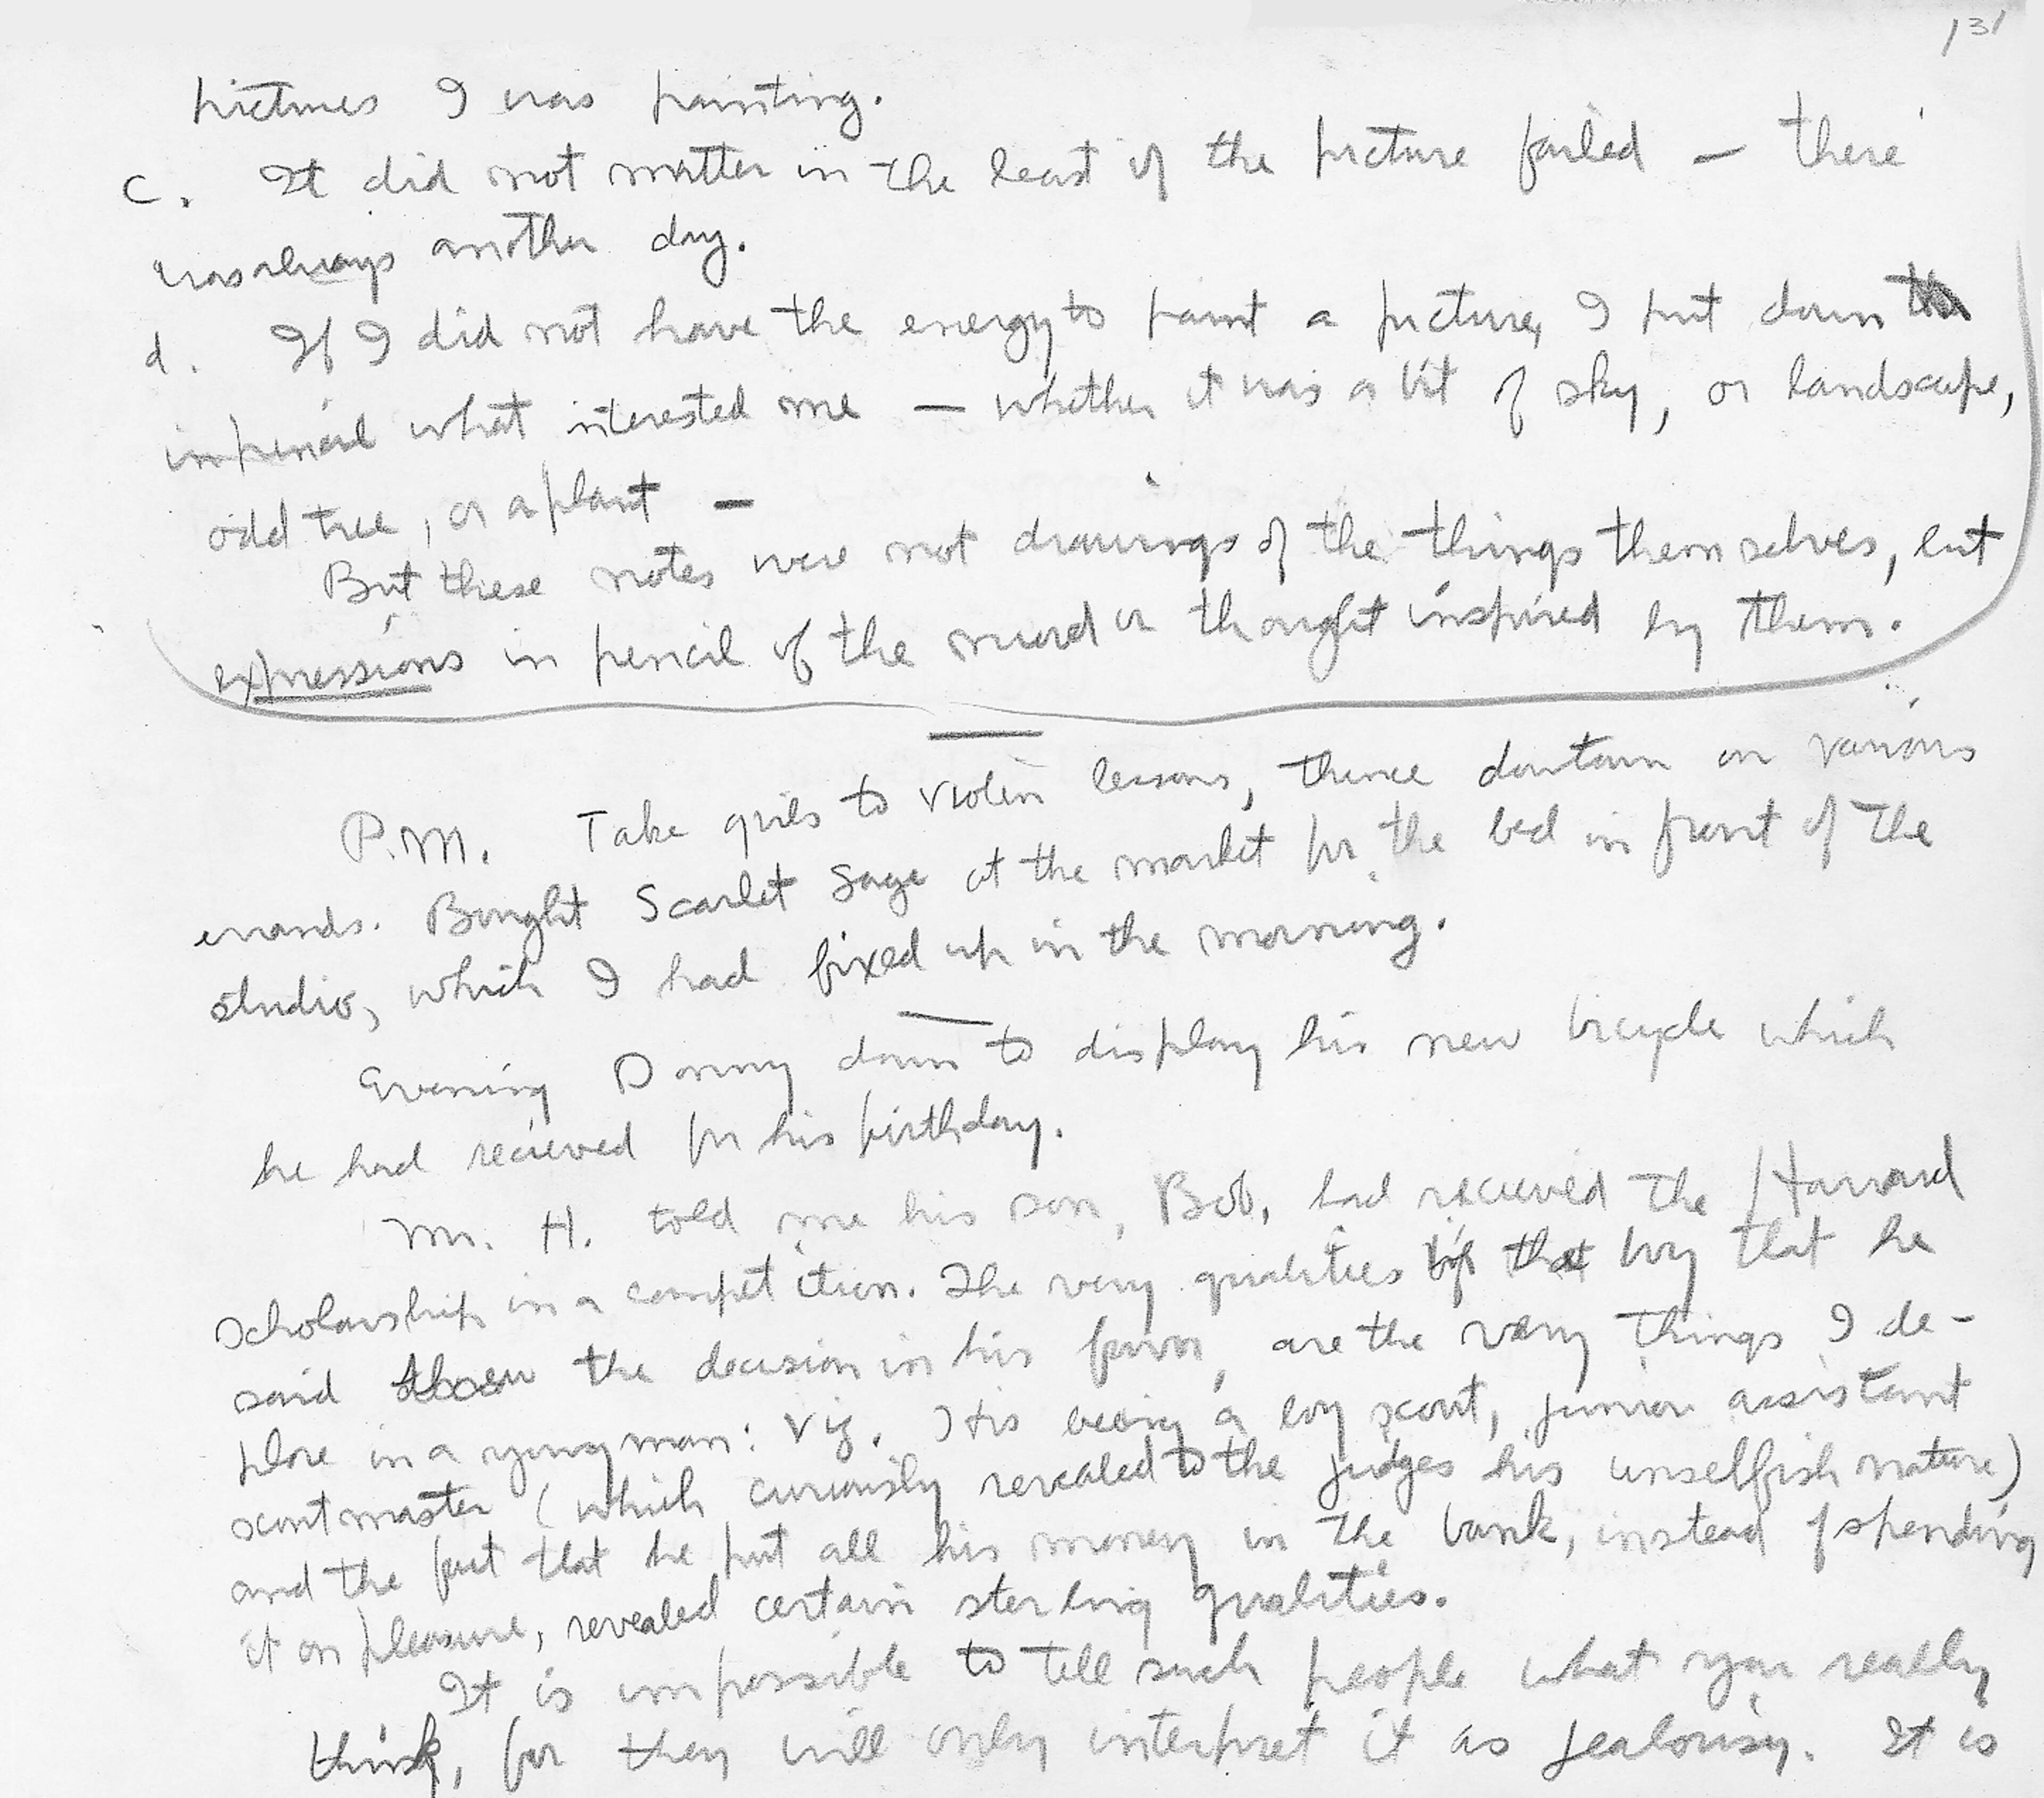 131
pictures I was painting.
c. It did not matter in the least if the picture failed — there
was always another day.
d. If I did not have the energy to paint a picture, I put down
in pencil what interested me — whether it was a bit of sky, or landscape,
odd tree, or a plant —
But these notes were not drawings of the things themselves, but
expressions in pencil of the mood or thought inspired by them.
P.M. Take girls to violin lessons, thence downtown on various
errands. Bought Scarlet Sage at the market for the bed in front of the
studio, which I had fixed up in the morning.
Evening Donny down to display his new bicycle which
he had recieved for his birthday.
Mr. H. told me his son, Bob, had recieved the Harvard
Scholarship in a competition. The very qualities of that boy that he
said threw the decision in his favor, are the very things I de-
plore in a young man: Viz. His being a boy scout, junior assistant
scoutmaster (which curiously revealed to the judges his unselfish nature)
and the fact that he put all his money in the bank, instead of spending
it on pleasure, revealed certain sterling qualities.
It is impossible to tell such people what you really
think, for they will only interpret it as jealousy. It is